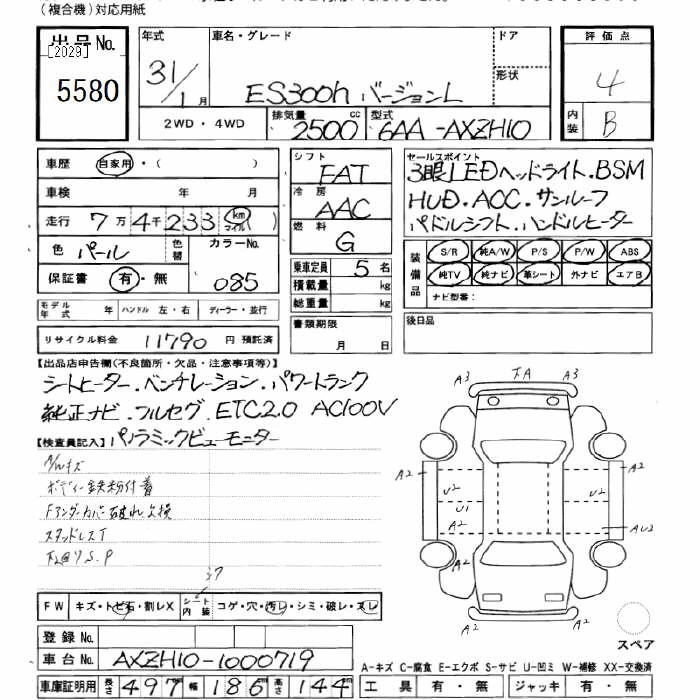 (複合機)対応用紙
出品No. [2029] 5580
年式 31/1月
車名・グレード ES300h バージョンL
ドア
形状
評価点 4
内装 B
2WD・4WD
排気量 2500cc
型式 6AA-AXZH10
車歴 自家用・( )
車検 年 月
走行 7万4千233 km マイル
色 パール 色替 カラーNo.
保証書 有・無 085
モデル年式 年 ハンドル 左・右 ディーラー・並行
リサイクル料金 11790 円 預託済
シフト FAT
冷房 AAC
燃料 G
乗車定員 5名
積載量 kg
総重量 kg
書類期限 月 日
セールスポイント
3眼LEDヘッドライト.BSM
HUD.ACC.サンルーフ
パドルシフト.ハンドルヒーター
装備品 S/R 純A/W P/S P/W ABS
純TV 純ナビ 革シート 外ナビ エアB
ナビ型番:
後日品
【出品店申告欄(不良箇所・欠品・注意事項等)】
シートヒーター.ベンチレーション.パワートランク
純正ナビ.フルセグ.ETC2.0 AC100V
【検査員記入】パノラミックビューモニター
A/Wキズ
ボディー鉄粉付着
Fアンダーカバー破れ.欠損
スタッドレスT
S.P
FW キズ・トビ石・割レX シート内装 コゲ・穴・汚レ・シミ・破レ・スレ
登録No.
車台No. AXZH10-1000719
車庫証明用 長さ 497 幅 186 高さ 144
A3 A3
A2 A2
U2 U2
U1
A2 AU2
A2
A2 A2
スペア
A-キズ C-腐食 E-エクボ S-サビ U-凹ミ W-補修 XX-交換済
工具 有・無 ジャッキ 有・無